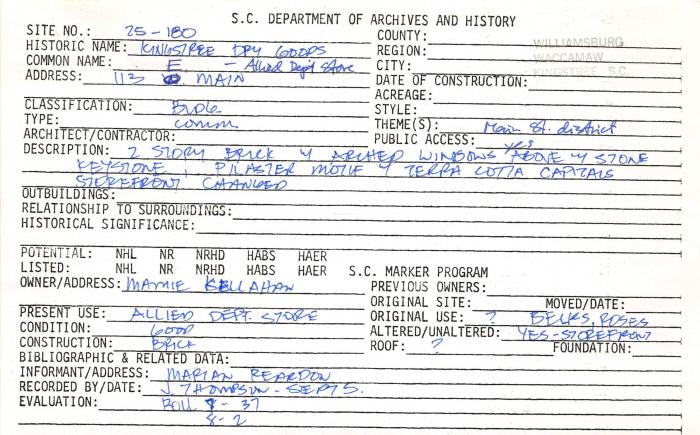 S.C. DEPARTMENT OF ARCHIVES AND HISTORY
SITE NO.: 25-180
COUNTY: WILLIAMSBURG
HISTORIC NAME: KINGSTREE DRY GOODS
REGION: WACCAMAW
COMMON NAME: E - Allied Dep't Store
CITY: KINGSTREE S.C.
ADDRESS: 113 MAIN
DATE OF CONSTRUCTION:
ACREAGE:
CLASSIFICATION: BLDG
STYLE:
TYPE: comm.
THEME(S): Main St. district
ARCHITECT/CONTRACTOR:
PUBLIC ACCESS: yes
DESCRIPTION: 2 STORY BRICK W ARCHED WINDOWS ABOVE W STONE
KEYSTONE, PILASTER MOTIF W TERRA COTTA CAPITALS
STOREFRONT CHANGED
OUTBUILDINGS:
RELATIONSHIP TO SURROUNDINGS:
HISTORICAL SIGNIFICANCE:
POTENTIAL: NHL NR NRHD HABS HAER
LISTED: NHL NR NRHD HABS HAER S.C. MARKER PROGRAM
OWNER/ADDRESS: MAMIE KELLAHAN
PREVIOUS OWNERS:
ORIGINAL SITE: MOVED/DATE:
PRESENT USE: ALLIED DEPT. STORE
ORIGINAL USE: ? BELKS, ROSES
CONDITION: GOOD
ALTERED/UNALTERED: YES-STOREFRONT
CONSTRUCTION: BRICK
ROOF: ? FOUNDATION:
BIBLIOGRAPHIC & RELATED DATA:
INFORMANT/ADDRESS: MARIAN REARDON
RECORDED BY/DATE: J. THOMPSON - SEPT 5.
EVALUATION: ROLL 7-37
8-2